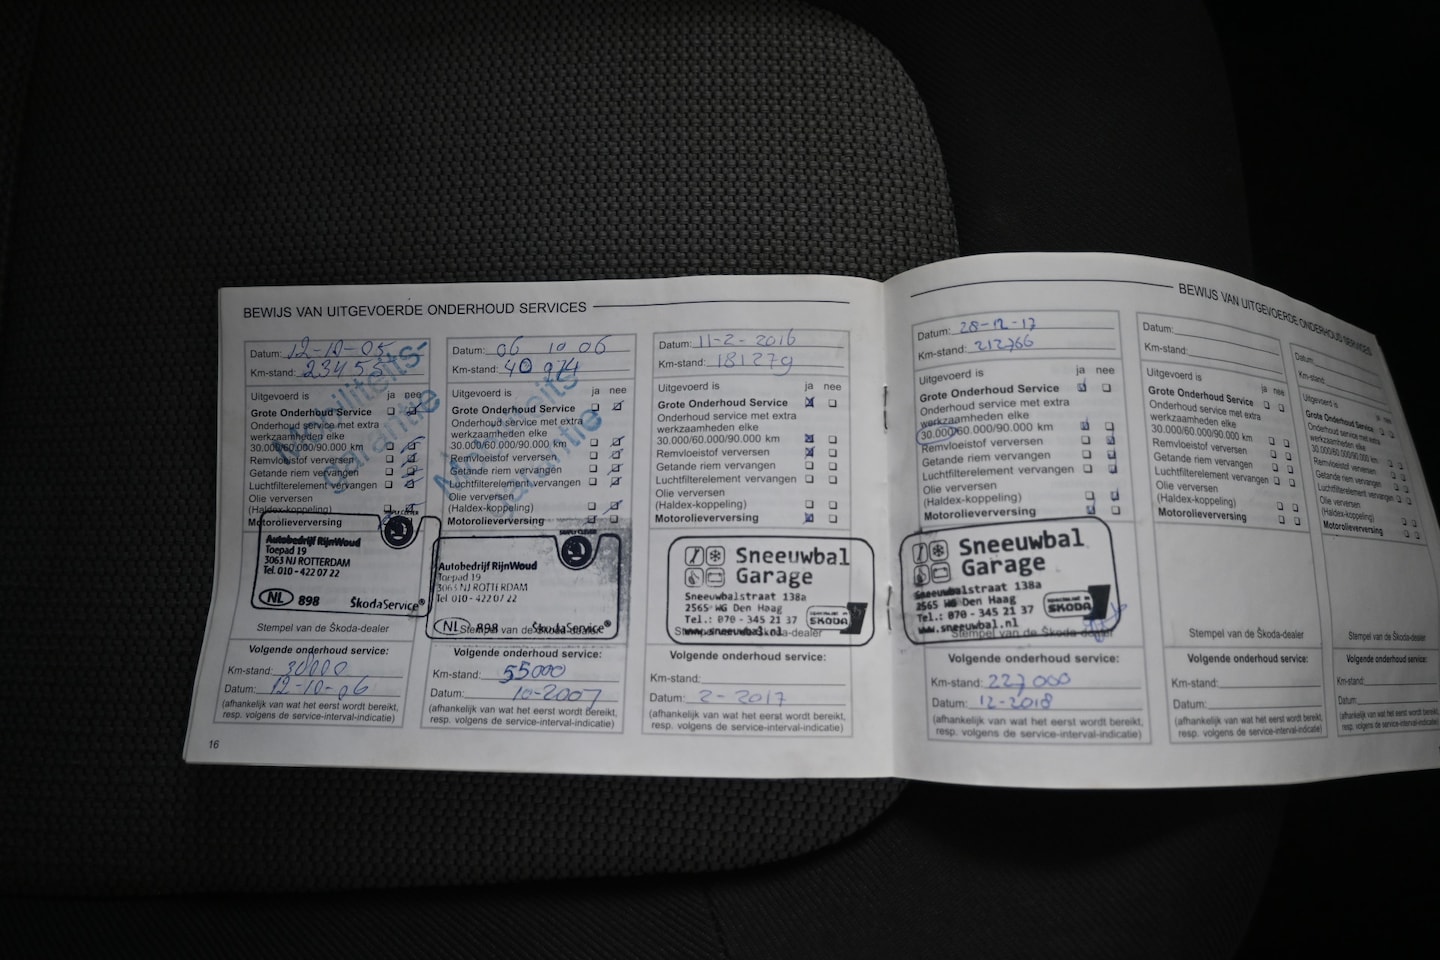 BEWIJS VAN UITGEVOERDE ONDERHOUD SERVICES
Datum: 12-10-05
Km-stand: 23455
Uitgevoerd is ja nee
Grote Onderhoud Service
Onderhoud service met extra
werkzaamheden elke
30.000/60.000/90.000 km
Remvloeistof verversen
Getande riem vervangen
Luchtfilterelement vervangen
Olie verversen
(Haldex-koppeling)
Motorolieverversing
Mobiliteits-
garantie
SIMPLY CLEVER
Autobedrijf RijnWoud
Toepad 19
3063 NJ ROTTERDAM
Tel. 010 - 422 07 22
NL 898 ŠkodaService®
Stempel van de Škoda-dealer
Volgende onderhoud service:
Km-stand: 38000
Datum: 12-10-06
(afhankelijk van wat het eerst wordt bereikt,
resp. volgens de service-interval-indicatie)
16
Datum: 06 10 06
Km-stand: 40974
Uitgevoerd is ja nee
Grote Onderhoud Service
Onderhoud service met extra
werkzaamheden elke
30.000/60.000/90.000 km
Remvloeistof verversen
Getande riem vervangen
Luchtfilterelement vervangen
Olie verversen
(Haldex-koppeling)
Motorolieverversing
Mobiliteits-
garantie
SIMPLY CLEVER
Autobedrijf RijnWoud
Toepad 19
3063 NJ ROTTERDAM
Tel 010 - 422 07 22
NL 898 ŠkodaService®
Stempel van de Škoda-dealer
Volgende onderhoud service:
Km-stand: 55000
Datum: 10-2007
(afhankelijk van wat het eerst wordt bereikt,
resp. volgens de service-interval-indicatie)
Datum: 11-2-2016
Km-stand: 181279
Uitgevoerd is ja nee
Grote Onderhoud Service
Onderhoud service met extra
werkzaamheden elke
30.000/60.000/90.000 km
Remvloeistof verversen
Getande riem vervangen
Luchtfilterelement vervangen
Olie verversen
(Haldex-koppeling)
Motorolieverversing
Sneeuwbal
Garage
Sneeuwbalstraat 138a
2565 WG Den Haag
Tel.: 070 - 345 21 37
www.sneeuwbal.nl
ŠKODA
Stempel van de Škoda-dealer
Volgende onderhoud service:
Km-stand:
Datum: 2-2017
(afhankelijk van wat het eerst wordt bereikt,
resp. volgens de service-interval-indicatie)
BEWIJS VAN UITGEVOERDE ONDERHOUD SERVICES
Datum: 28-12-17
Km-stand: 212766
Uitgevoerd is ja nee
Grote Onderhoud Service
Onderhoud service met extra
werkzaamheden elke
30.000/60.000/90.000 km
Remvloeistof verversen
Getande riem vervangen
Luchtfilterelement vervangen
Olie verversen
(Haldex-koppeling)
Motorolieverversing
Sneeuwbal
Garage
Sneeuwbalstraat 138a
2565 WG Den Haag
Tel.: 070 - 345 21 37
www.sneeuwbal.nl
ŠKODA
Stempel van de Škoda-dealer
Volgende onderhoud service:
Km-stand: 227000
Datum: 12-2018
(afhankelijk van wat het eerst wordt bereikt,
resp. volgens de service-interval-indicatie)
Datum:
Km-stand:
Uitgevoerd is ja nee
Grote Onderhoud Service
Onderhoud service met extra
werkzaamheden elke
30.000/60.000/90.000 km
Remvloeistof verversen
Getande riem vervangen
Luchtfilterelement vervangen
Olie verversen
(Haldex-koppeling)
Motorolieverversing
Stempel van de Škoda-dealer
Volgende onderhoud service:
Km-stand:
Datum:
(afhankelijk van wat het eerst wordt bereikt,
resp. volgens de service-interval-indicatie)
Datum:
Km-stand:
Uitgevoerd is ja nee
Grote Onderhoud Service
Onderhoud service met extra
werkzaamheden elke
30.000/60.000/90.000 km
Remvloeistof verversen
Getande riem vervangen
Luchtfilterelement vervangen
Olie verversen
(Haldex-koppeling)
Motorolieverversing
Stempel van de Škoda-dealer
Volgende onderhoud service:
Km-stand:
Datum:
(afhankelijk van wat het eerst wordt bereikt,
resp. volgens de service-interval-indicatie)